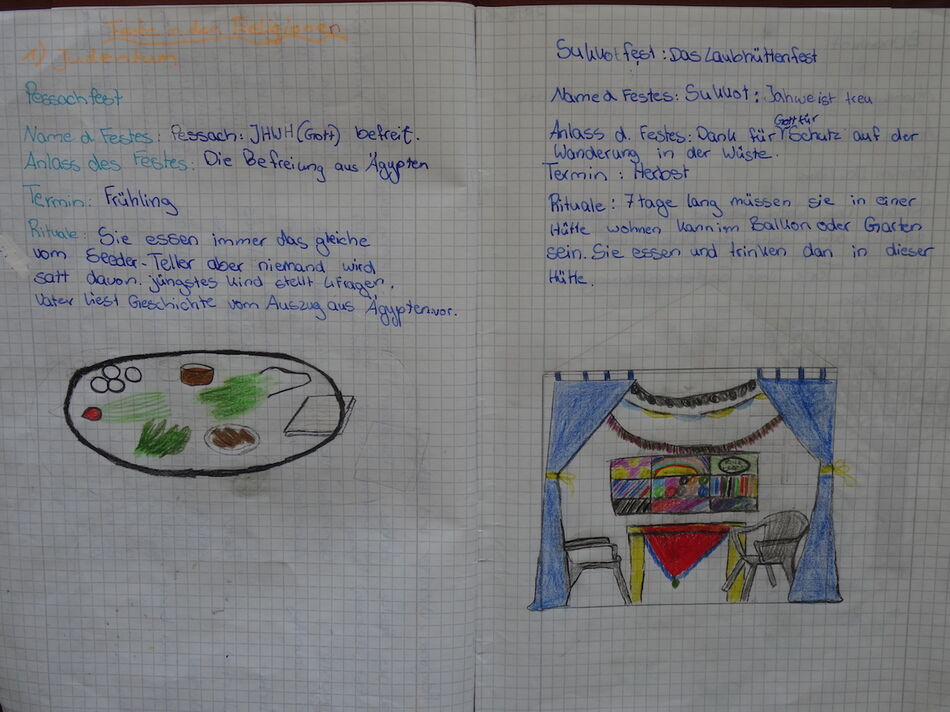 Feste in den Religionen
1) Judentum
Pessachfest
Name d Festes: Pessach: JHWH (Gott) befreit.
Anlass des Festes: Die Befreiung aus Ägypten
Termin: Frühling
Rituale: Sie essen immer das gleiche
vom Seeder-Teller aber niemand wird
satt davon. jüngstes Kind stellt 4 Fragen.
Vater liest Geschichte vom Auszug aus Ägypten vor.
Sukkotfest: Das Laubhüttenfest
Name d Festes: Sukkot: Jahwe ist treu
Anlass d. Festes: Dank für Gott für Schutz auf der
Wanderung in der Wüste.
Termin: Herbst
Rituale: 7 tage lang müssen sie in einer
Hütte wohnen kann im Balkon oder Garten
sein. Sie essen und trinken dan in dieser
Hütte.